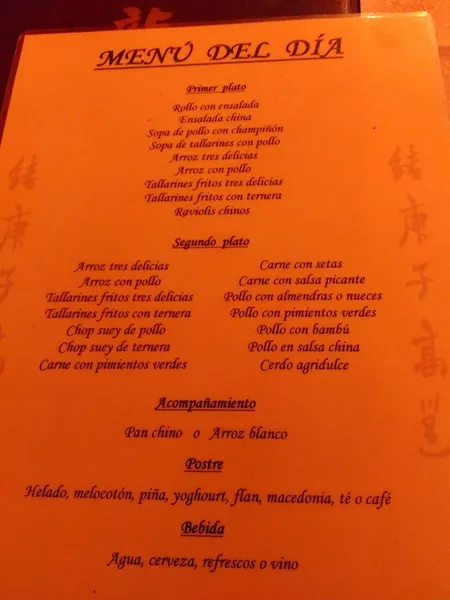 MENÚ DEL DÍA
Primer plato
Rollo con ensalada
Ensalada china
Sopa de pollo con champiñón
Sopa de tallarines con pollo
Arroz tres delicias
Arroz con pollo
Tallarines fritos tres delicias
Tallarines fritos con ternera
Raviolis chinos
Segundo plato
Arroz tres delicias
Arroz con pollo
Tallarines fritos tres delicias
Tallarines fritos con ternera
Chop suey de pollo
Chop suey de ternera
Carne con pimientos verdes
Carne con setas
Carne con salsa picante
Pollo con almendras o nueces
Pollo con pimientos verdes
Pollo con bambú
Pollo en salsa china
Cerdo agridulce
Acompañamiento
Pan chino o Arroz blanco
Postre
Helado, melocotón, piña, yoghourt, flan, macedonia, té o café
Bebida
Agua, cerveza, refrescos o vino